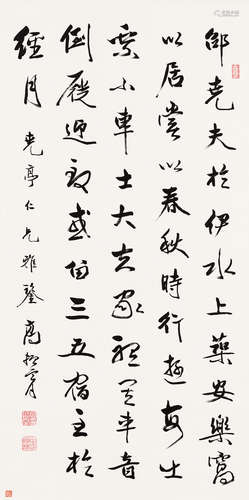 邵堯夫於伊水上築安樂窩
以居嘗以春秋時行遊每出
乘小車士大夫家聽其車音
倒屣迎致或留三五宿主於
經月
堯亭仁兄雅鑒 高振霄